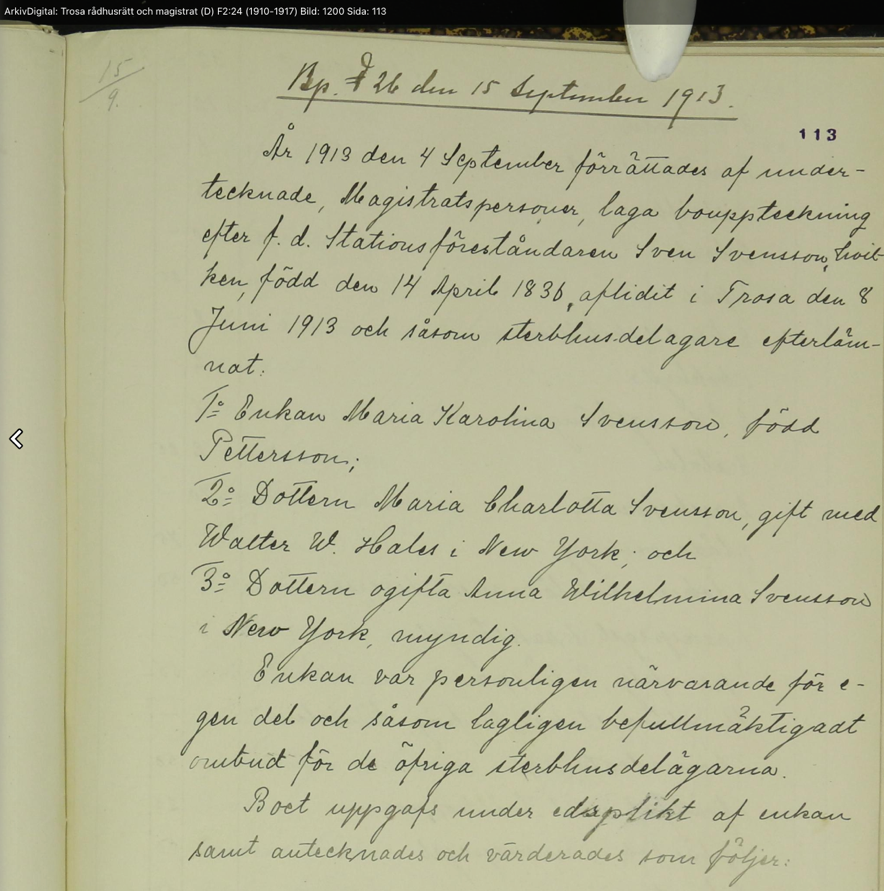 ArkivDigital: Trosa rådhusrätt och magistrat (D) F2:24 (1910-1917) Bild: 1200 Sida: 113
15/9.
Bp. § 26 den 15 September 1913.
113
År 1913 den 4 September förrättades af under-
tecknade, Magistratspersoner, laga bouppteckning
efter f. d. Stationsföreståndaren Sven Svensson, hvil-
ken, född den 14 April 1836, aflidit i Trosa den 8
Juni 1913 och såsom sterbhusdelagare efterläm-
nat:
1º Enkan Maria Karolina Svensson, född
Pettersson;
2º Dottern Maria Charlotta Svensson, gift med
Walter W. Hales i New York; och
3º Dottern ogifta Anna Wilhelmina Svensson
i New York, myndig.
Enkan var personligen närvarande för e-
gen del och såsom lagligen befullmäktigadt
ombud för de öfriga sterbhusdelägarna.
Boet uppgafs under edsplikt af enkan
samt antecknades och värderades som följer: